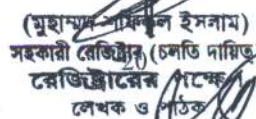 (মুহাম্মদ শফিকুল ইসলাম)
সহকারী রেজিষ্ট্রার (চলতি দায়িত্ব
রেজিষ্ট্রারের পক্ষে
লেখক ও পাঠক